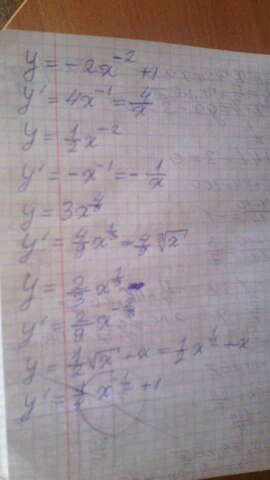 y = -2x^{-2} + 1
y' = 4x^{-1} = \frac{4}{x}
y = \frac{1}{2}x^{-2}
y' = -x^{-1} = -\frac{1}{x}
y = 3x
y' = \frac{4}{9}x^{\frac{1}{3}} = \frac{4}{9}\sqrt[3]{x}
y = \frac{2}{3}x^{\frac{1}{3}}
y' = \frac{2}{9}x^{-\frac{2}{3}}
y = \frac{1}{2}\sqrt{x} - x = \frac{1}{2}x^{\frac{1}{2}} - x
y' = \frac{1}{4}x^{-\frac{1}{2}} + 1